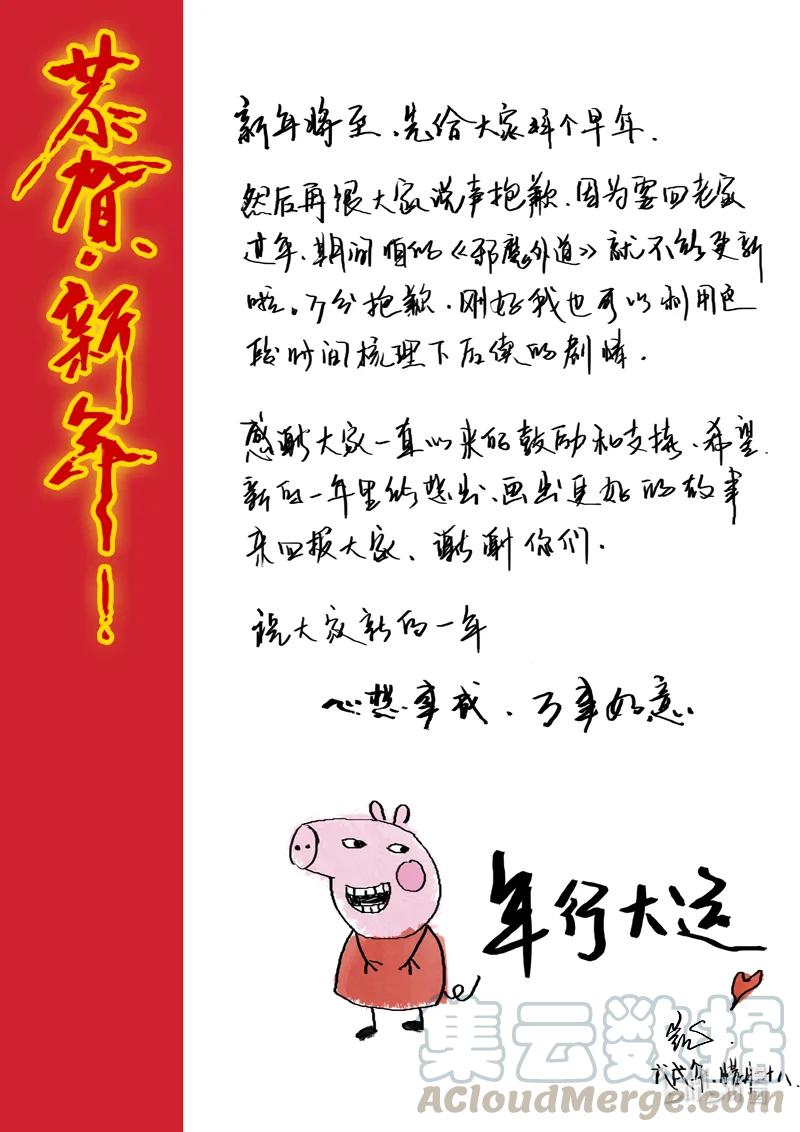 恭贺新年!
新年将至、先给大家拜个早年.
然后再跟大家说声抱歉.因为要回老家
过年、期间咱们《邪魔外道》就不能更新
啦。万分抱歉.刚好我也可以利用这
段时间梳理下后续的剧情.
感谢大家一直以来的鼓励和支持、希望
新的一年里能想出、画出更好的故事
来回报大家、谢谢你们.
祝大家新的一年
心想事成、万事如意
年行大运
戊戌年.腊月十八.
集云数据
ACloudMerge.com